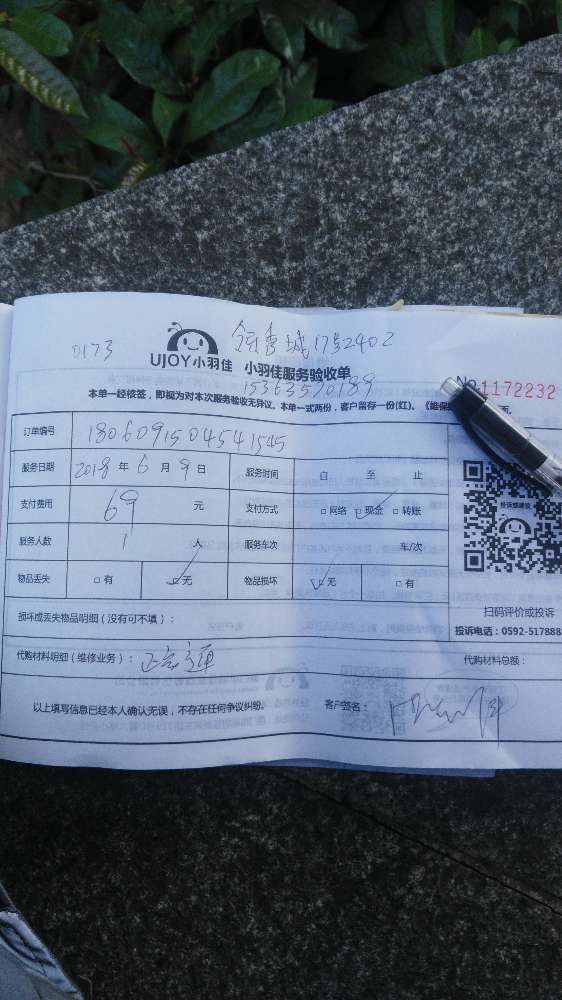 0173 领秀城17号2402
UJOY小羽佳 小羽佳服务验收单
15363590189
No 1172232
本单一经核签,即视为对本次服务验收无异议。本单一式两份,客户留存一份(红)。《维保
订单编号 1806091504541545
服务日期 2018 年 6 月 9 日 服务时间 自 至 止
支付费用 69 元 支付方式 □网络 ☑现金 □转账
服务人数 1 人 服务车次 车/次
物品丢失 □有 ☑无 物品损坏 ☑无 □有
投诉或建议
损坏或丢失物品明细(没有可不填):
扫码评价或投诉
投诉电话:0592-517888
代购材料明细(维修业务): 代购材料总额:
以上填写信息已经本人确认无误,不存在任何争议纠纷。 客户签名: